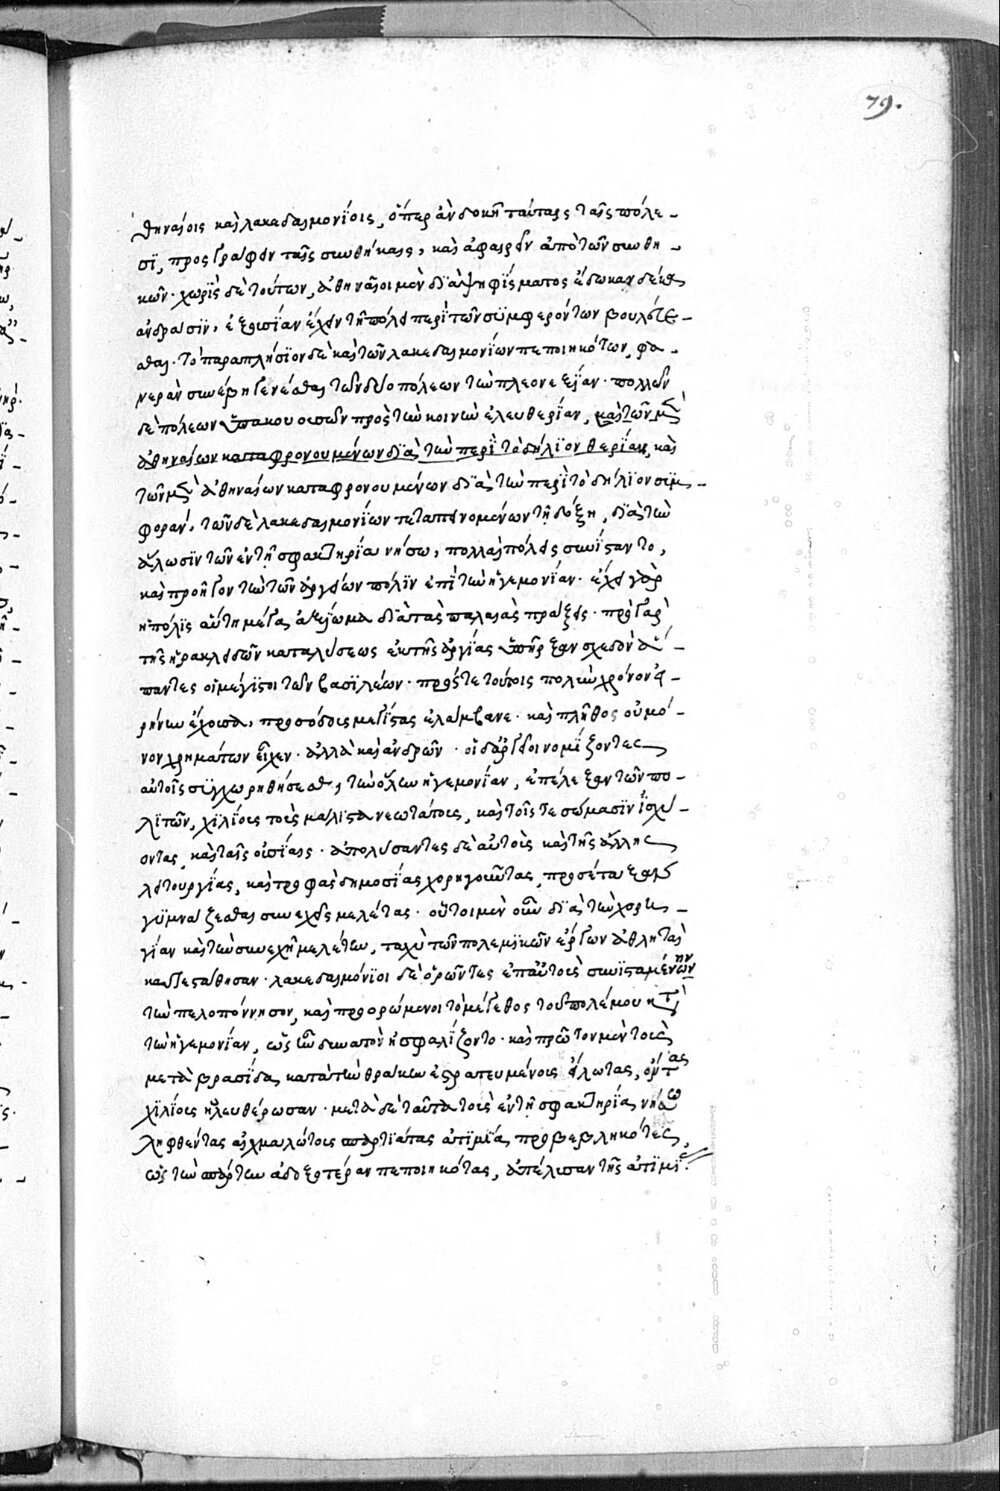 79.
θηναίοις καὶ λακεδαιμονίοις, ὅπερ ἂν δοκῇ ταύταις ταῖς πόλε-
σϊ, προσγράφειν ταῖς συνθήκαις, καὶ ἀφαιρεῖν ἀπὸ τῶν συνθη-
κῶν· χωρὶς δὲ τούτων, ἀθηναῖοι μὲν διὰ ψηφίσματος ἔδωκαν δέκα
ἀνδράσϊν, ἐξουσίαν ἔχειν τῇ πόλει περὶ τῶν συμφερόντων βουλεύε-
σθαι· τὸ παραπλήσϊον δὲ καὶ τῶν λακεδαιμονίων πεποιηκότων, φα-
νερὰν συνέβη γενέσθαι τῶν δύο πόλεων τὴν πλεονεξίαν· πολλῶν
δὲ πόλεων ὑπακουουσῶν πρὸς τὴν κοινὴν ἐλευθερίαν, καὶ τῶν μὲν
ἀθηναίων καταφρονουμένων διὰ τὴν περὶ τὸ δήλϊον θερίαν, καὶ
τῶν μὲν ἀθηναίων καταφρονουμένων διὰ τὴν περὶ τὸ δήλϊον συμ-
φοράν, τῶν δὲ λακεδαιμονίων τεταπεινομένων τῇ δόξῃ, διὰ τὴν
ἅλωσϊν τῶν ἐν τῇ σφακτηρία νήσω, πολλαὶ πόλεις συνίσταντο,
καὶ προῆγον τὴν τῶν ἀργείων πόλϊν ἐπὶ τὴν ἡγεμονίαν· εἶχε γὰρ
ἡ πόλϊς αὕτη μέγα ἀξίωμα διὰ τὰς παλαιὰς πράξεις· πρὸ γὰρ
τῆς ἡρακλειδῶν καταλύσεως ἐκ τῆς ἀργίας ὑπῆρξαν σχεδὸν ἅ-
παντες οἱ μέγϊστοι τῶν βασϊλέων· πρὸς τε τούτοις πολὺν χρόνον εἰ-
ρήνην ἔχουσα, προσόδοις μεγίστας ἐλάμβανε· καὶ πλῆθος οὐ μό-
νον χρημάτων εἶχεν· ἀλλὰ καὶ ἀνδρῶν· οἱ δ' ἀργεῖοι νομίζοντες
αὐτοῖς συγχωρηθήσεσθαι τὴν ὅλην ἡγεμονίαν, ἐπέλεξαν τῶν πο-
λϊτῶν, χϊλίους τοὺς μάλϊστα νεωτάτοις, καὶ τοῖς τε σώμασϊν ἰσχύ-
οντας, καὶ ταῖς οὐσίαις· ἀπολύσαντες δὲ αὐτοὺς καὶ τῆς ἄλλης
λειτουργίας, καὶ τροφὰς δημοσίας χορηγοῦντας, προσέταξαν
γυμνάζεσθαι συνεχεῖς μελέτας· οὗτοι μὲν οὖν διὰ τὴν χορη-
γίαν καὶ τὴν συνεχῆ μελέτην, ταχὺ τῶν πολεμϊκῶν ἔργων ἀθληταὶ
κατεστάθησαν· λακεδαιμόνϊοι δὲ ὁρῶντες ἐπ' αὐτοὺς συνϊσταμένην
τὴν πελοπόννησον, καὶ προορώμενοι τὸ μέγεθος τοῦ πολέμου
τὴν ἡγεμονίαν, ὡς ἦν δυνατὸν ἠσφαλίζοντο· καὶ πρῶτον μὲν τοὺς
μετὰ βρασίδα κατὰ τὴν θράκην ἐστρατευμένοις εἵλωτας, ὄντας
χϊλίοις ἠλευθέρωσαν· μετὰ δὲ ταῦτα τοὺς ἐν τῇ σφακτηρία νήσω
ληφθέντας αἰχμαλώτοις σπαρτϊάτας ἀτϊμία προβεβληκότες,
ὡς τὴν σπάρτην ἀδοξοτέραν πεποιηκότας, ἀπέλυσαν τῆς ἀτϊμί